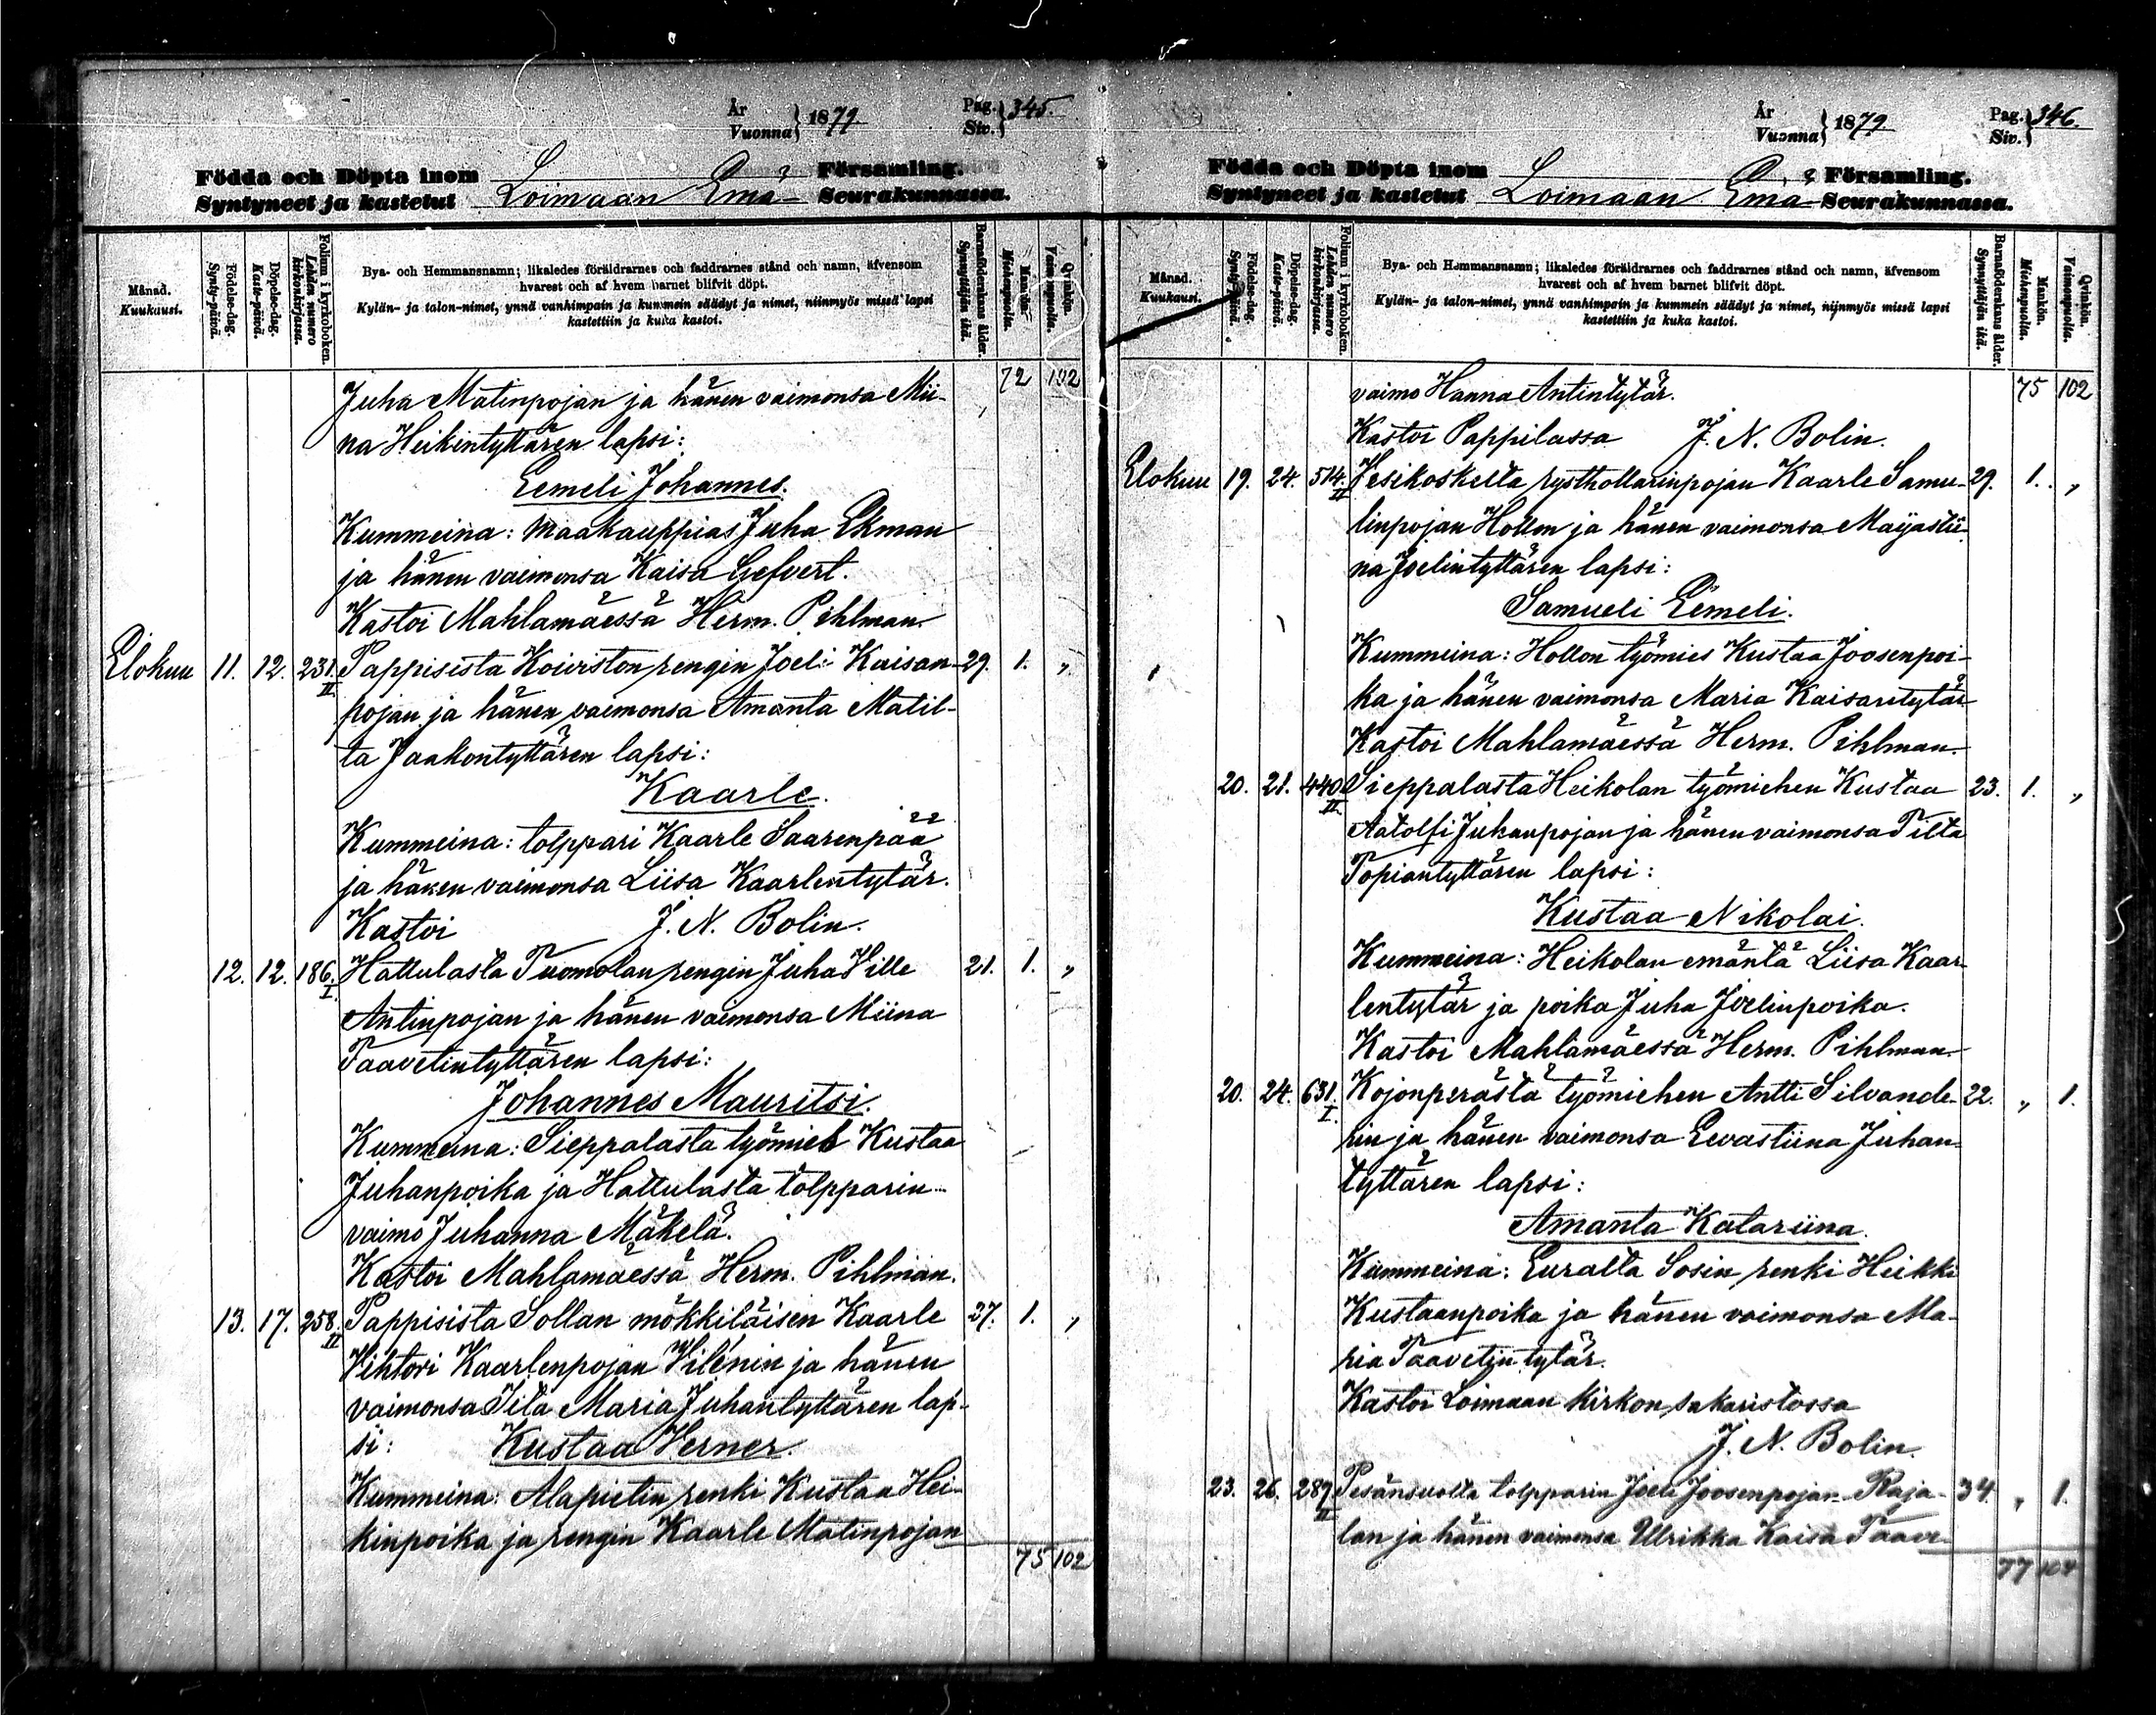 År
Vuonna } 1879
Pag.
Siv. } 345.
Födda och Döpta inom
Syntyneet ja kastetut Loimaan Emä- Församling.
Seurakunnassa.
Månad.
Kuukausi.
Födelse-dag.
Synty-päivä.
Döpelse-dag.
Kaste-päivä.
Folium i kyrkoboken.
Lehden numero kirkonkirjassa.
Bya- och Hemmansnamn; likaledes föräldrarnes och faddrarnes stånd och namn, äfvensom
hvarest och af hvem barnet blifvit döpt.
Kylän- ja talon-nimet, ynnä vanhimpain ja kummein säädyt ja nimet, niinmyös missä lapsi
kastettiin ja kuka kastoi.
Barnaföderskans ålder.
Synnyttäjän ikä.
Mankön.
Miehenpuolta.
Qvinkön.
Vaimonpuolta.
72 102
Juha Matinpojan ja hänen vaimonsa Mii-
na Heikintyttären lapsi:
Eemeli Johannes.
Kummeina: maakauppias Juha Ekman
ja hänen vaimonsa Kaisa Gefvert.
Kastoi Mahlamäessä Herm. Pihlman
Elokuu 11. 12. 231. II Pappisista Koiviston rengin Joeli Kaisan- 29. 1. "
pojan ja hänen vaimonsa Amanta Matil-
ta Jaakontyttären lapsi:
Kaarle.
Kummeina: tolppari Kaarle Saarenpää
ja hänen vaimonsa Liisa Kaarlentytär.
Kastoi J. N. Bolin.
12. 12. 186. I. Hattulasta Tuomolan rengin Juha Ville 21. 1. "
Antinpojan ja hänen vaimonsa Miina
Taavetintyttären lapsi:
Johannes Mauritsi.
Kummeina: Sieppalasta työmies Kustaa
Juhanpoika ja Hattulasta tolpparin
vaimo Juhanna Mäkelä.
Kastoi Mahlamäessä Herm. Pihlman.
13. 17. 258. II Pappisista Sollan mökkiläisen Kaarle 27. 1. "
Vihtori Kaarlenpojan Vilénin ja hänen
vaimonsa Tilta Maria Juhantyttären lap-
si: Kustaa Verner
Kummeina: Alapietin renki Kustaa Hei-
kinpoika ja rengin Kaarle Matinpojan
75 102
År
Vuonna } 1879
Pag.
Siv. } 346.
Födda och Döpta inom
Syntyneet ja kastetut Loimaan Emä Församling.
Seurakunnassa.
Månad.
Kuukausi.
Födelse-dag.
Synty-päivä.
Döpelse-dag.
Kaste-päivä.
Folium i kyrkoboken.
Lehden numero kirkonkirjassa.
Bya- och Hemmansnamn; likaledes föräldrarnes och faddrarnes stånd och namn, äfvensom
hvarest och af hvem barnet blifvit döpt.
Kylän- ja talon-nimet, ynnä vanhimpain ja kummein säädyt ja nimet, niinmyös missä lapsi
kastettiin ja kuka kastoi.
Barnaföderskans ålder.
Synnyttäjän ikä.
Mankön.
Miehenpuolta.
Qvinkön.
Vaimonpuolta.
75 102
vaimo Hanna Antintytär.
Kastoi Pappilassa J. N. Bolin.
Elokuu 19. 24. 514. II Vesikoskelta rysthollarinpojan Kaarle Samu- 29. 1. "
linpojan Hollon ja hänen vaimonsa Maijastii-
na Joelintyttären lapsi:
Samueli Eemeli.
Kummeina: Hollon työmies Kustaa Joosenpoi-
ka ja hänen vaimonsa Maria Kaisantytär
Kastoi Mahlamäessä Herm. Pihlman
20. 21. 440. II Sieppalasta Heikolan työmiehen Kustaa 23. 1. "
Aatolfi Juhanpojan ja hänen vaimonsa Tilta
Topiantyttären lapsi:
Kustaa Nikolai.
Kummeina: Heikolan emäntä Liisa Kaar-
lentytär ja poika Juha Joelinpoika.
Kastoi Mahlamäessä Herm. Pihlman
20. 24. 631. I. Kojonperästä työmiehen Antti Silvande- 22. " 1.
rin ja hänen vaimonsa Eevastiina Juhan-
tyttären lapsi:
Amanta Katariina.
Kummeina: Euralta Sosin renki Heikki
Kustaanpoika ja hänen vaimonsa Ma-
ria Taavetintytär.
Kastoi Loimaan kirkon sakaristossa
J. N. Bolin.
23. 26. 287. II Pesänsuolta tolpparin Joeli Joosenpojan Raja- 34. " 1.
lan ja hänen vaimonsa Ulrikka Kaisa Taave-
77 104